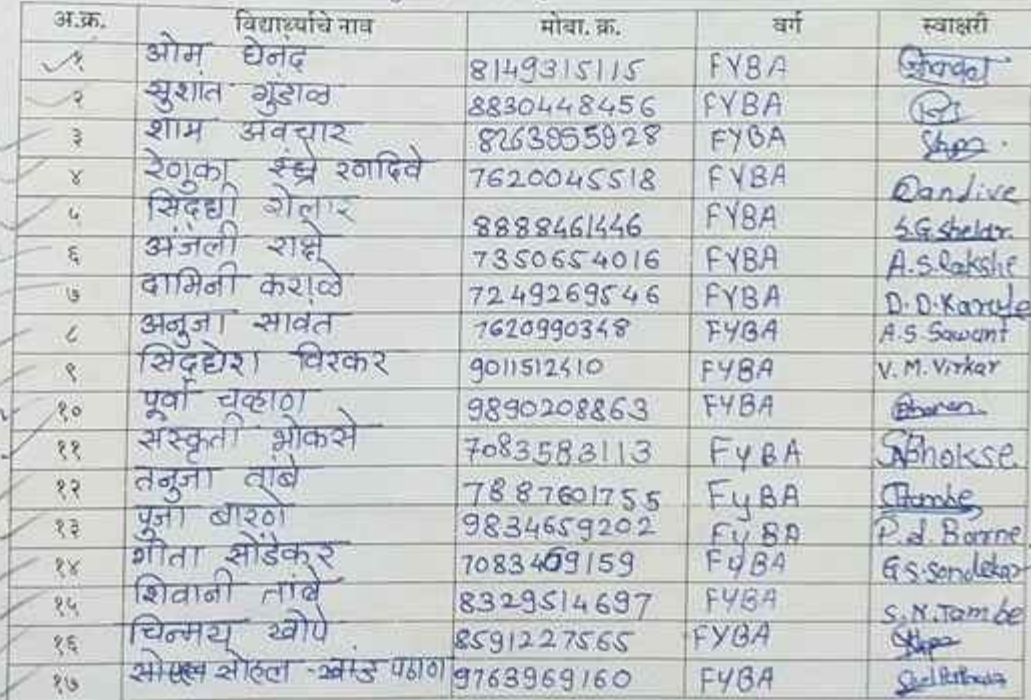 अ.क्र. विद्यार्थ्याचे नाव मोबा. क्र. वर्ग स्वाक्षरी
१ ओम घेनंद 8149315115 FYBA
२ सुशांत गुंडाळ 8830448456 FYBA
३ शाम अवचार 8263955928 FYBA
४ रेणुका रणदिवे 7620045518 FYBA Randive
५ सिद्धी शेलार 8888461446 FYBA S.G.shelar.
६ अंजली राक्षे 7350654016 FYBA A.S.Rakshe
७ दामिनी कराळे 7249269546 FYBA D.D.Karale
८ अनुजा सावंत 7620990348 FYBA A.S Sawant
९ सिद्धेश विरकर 9011512410 FYBA V.M.Virkar
१० पूर्वा चव्हाण 9890208863 FYBA
११ संस्कृती भोकसे 7083583113 FyBA SBhokse.
१२ तनुजा तांबे 7887601755 FyBA Tambe
१३ पुजा बारणे 9834659202 FyBA P.d. Barne
१४ गीता सोंडेकर 7083409159 FyBA G.S.Sondekar
१५ शिवानी तांबे 8329514697 FYBA S.N.Tambe
१६ चिन्मय खोपे 8591227565 FYBA
१७ सोहल खांड पठाण 9763969160 FYBA